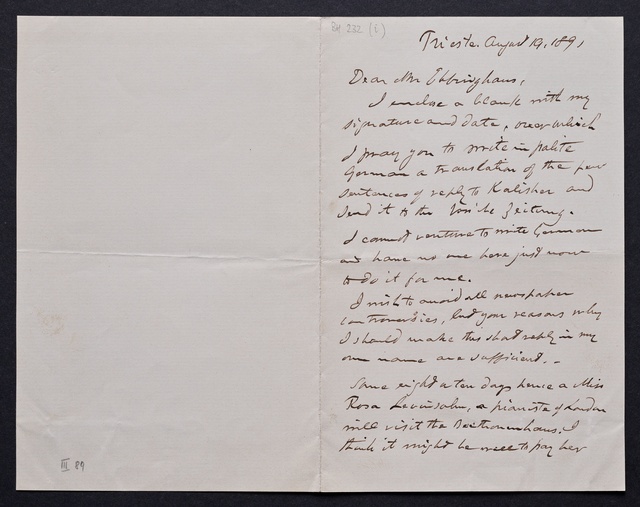 BH 232 (1.)
Trieste August 19. 1891
Dear Mr Ebbinghaus,
I enclose a blank with my
signature and date, over which
I pray you to write in polite
German a translation of the few
sentences of reply to Kalisher and
send it to the Zeitung.
I cannot venture to write German
and have no one here just now
to do it for me.
I wish to avoid all newspaper
controversies, but your reasons why
I should make this short reply in my
own name are sufficient. –
Some eight or ten days hence a Miss
Rosa Levinsohn, a pianiste of London
will visit the Beethovenhaus. I
think it might be well to pay her
III 87